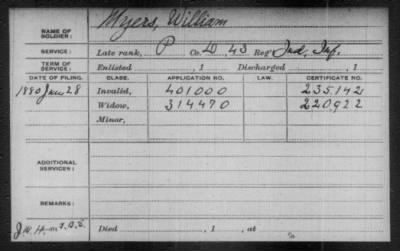 Myers, William
NAME OF SOLDIER:
SERVICE: Late rank, P Co. D, 43 Reg't Ind. Inf.
TERM OF SERVICE: Enlisted , 1 Discharged , 1
DATE OF FILING. CLASS. APPLICATION NO. LAW. CERTIFICATE NO.
1880 Jan 28 Invalid, 401000 235.142
Widow, 314470 220.922
Minor,
ADDITIONAL SERVICES:
REMARKS:
Died , 1 , at